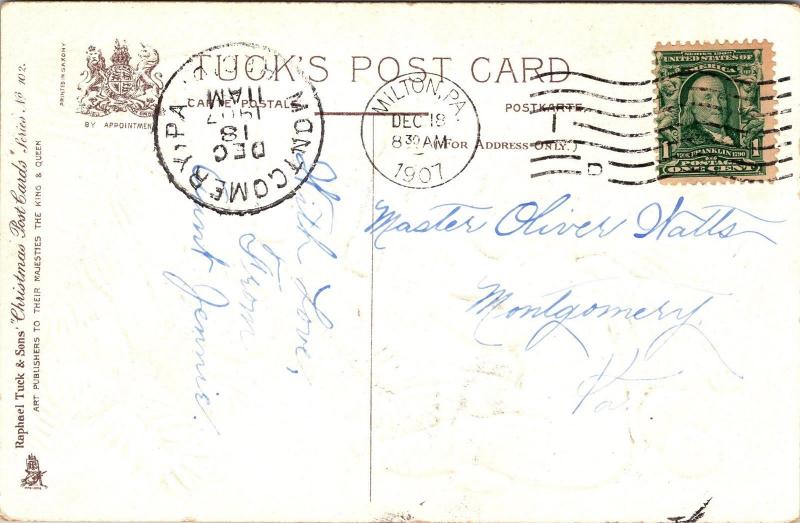 TUCK'S POST CARD
CARTE POSTALE
POSTKARTE
(FOR ADDRESS ONLY.)
BY APPOINTMENT
PRINTED IN SAXONY
Raphael Tuck & Sons' "Christmas Post Cards" Series No 102.
ART PUBLISHERS TO THEIR MAJESTIES THE KING & QUEEN
MONTGOMERY, PA.
DEC
18
11AM
1907
MILTON, PA.
DEC 18
8 30 AM
1907
SERIES 1902
UNITED STATES OF
AMERICA
1706 FRANKLIN 1790
POSTAGE
1 1
ONE CENT
D
With Love,
From
Aunt Jennie.
Master Oliver Watts
Montgomery
Pa.